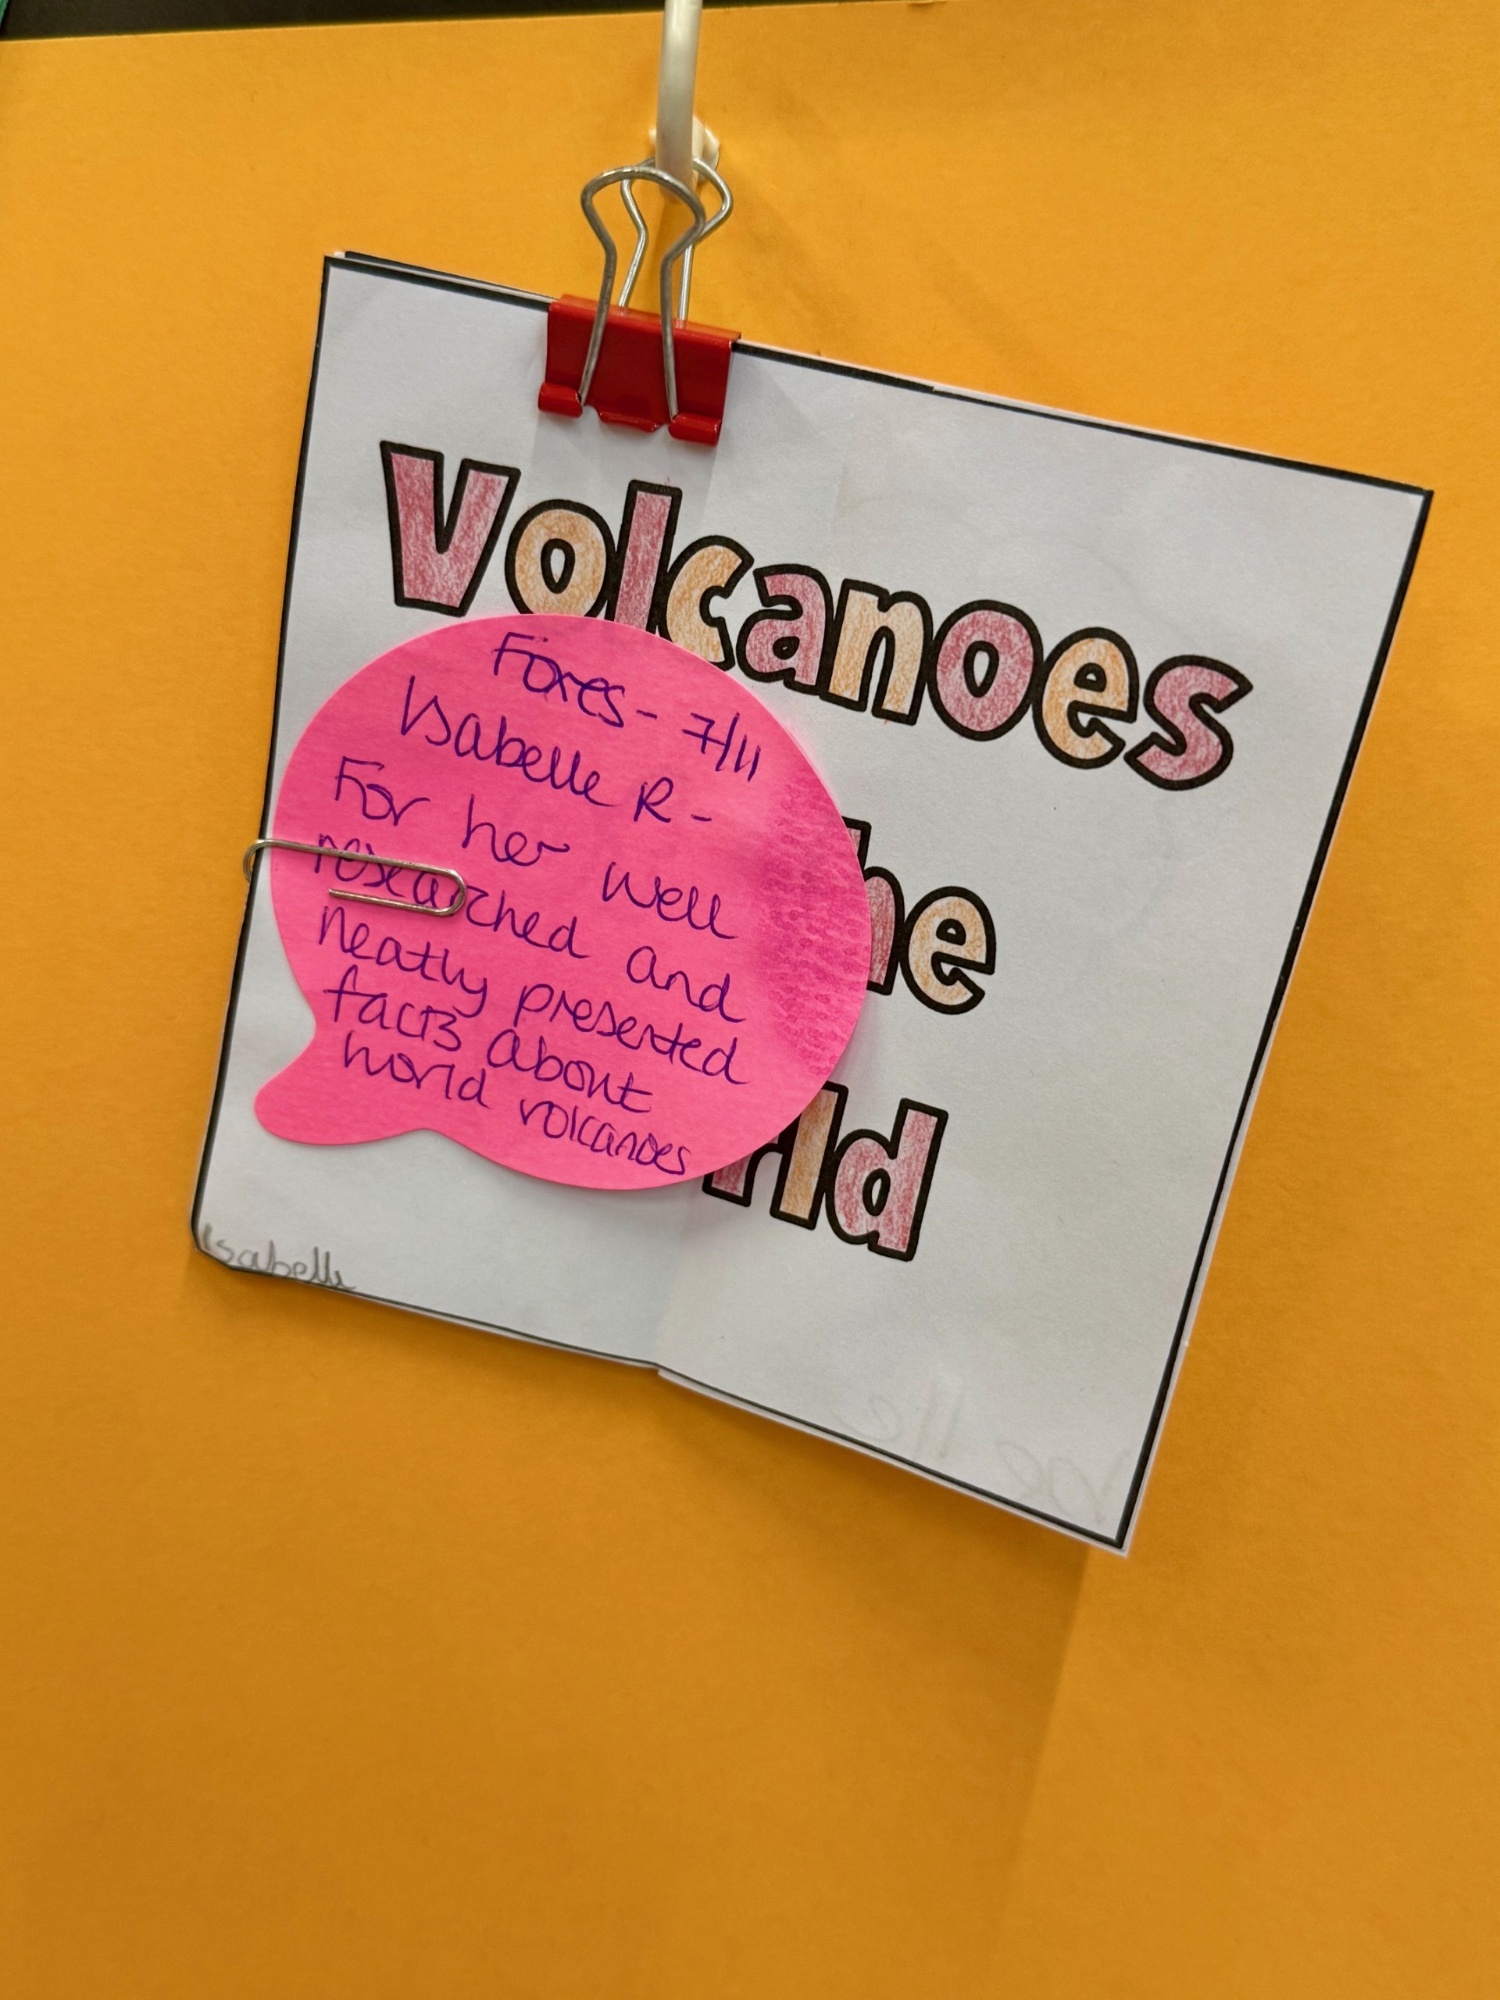 Volcanoes
he
rld
Foxes - 7/11
Isabelle R -
For her well
researched and
neatly presented
facts about
world volcanoes
Isabelle